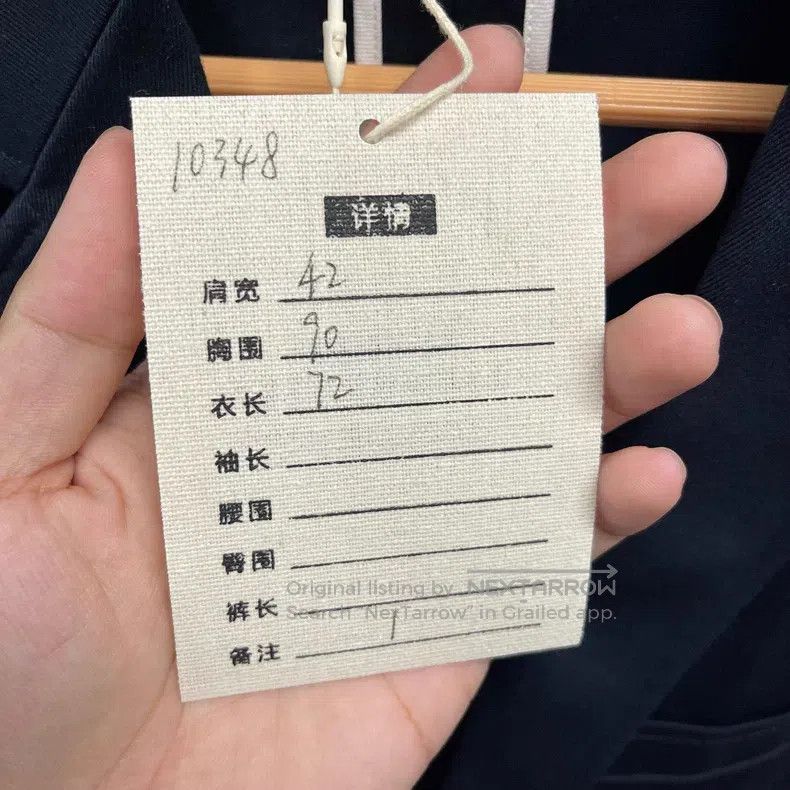 10348
详情
肩宽 42
胸围 90
衣长 72
袖长
腰围
臀围
裤长
备注 1
Original listing by NEXTARROW
Search "NexTarrow" in Grailed app.